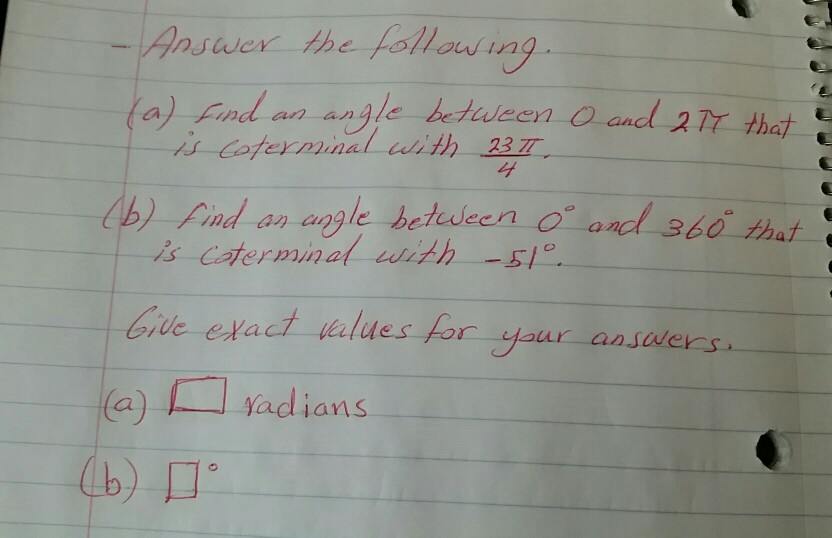 - Answer the following.
(a) find an angle between 0 and 2π that
is coterminal with 23π/4.
(b) find an angle between 0° and 360° that
is coterminal with -51°.
Give exact values for your answers.
(a) □ radians
(b) □°